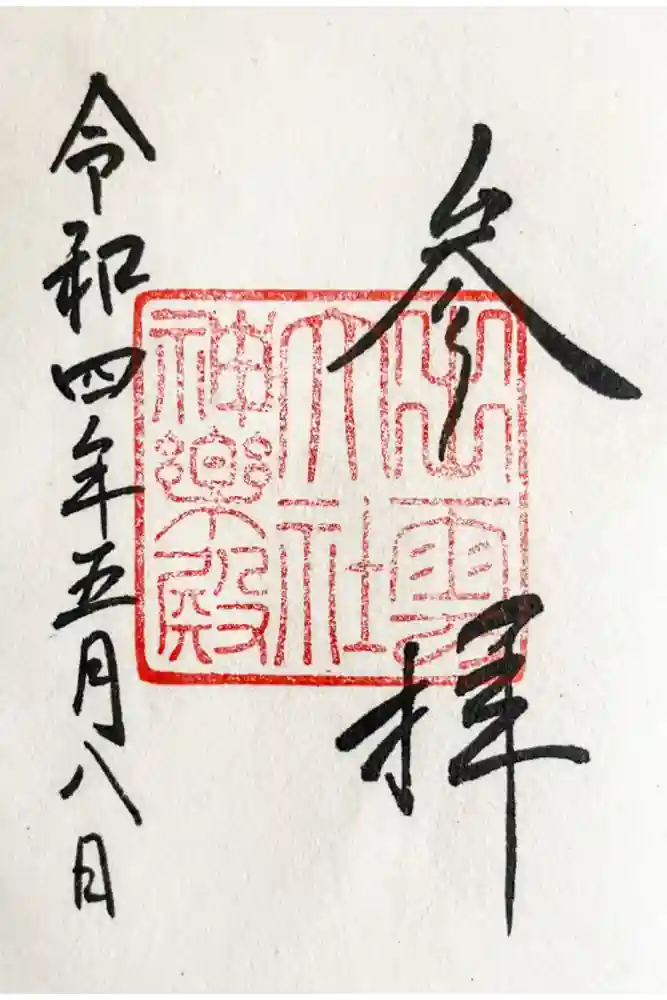 参拝
出雲
大社
神楽殿
令和四年五月八日